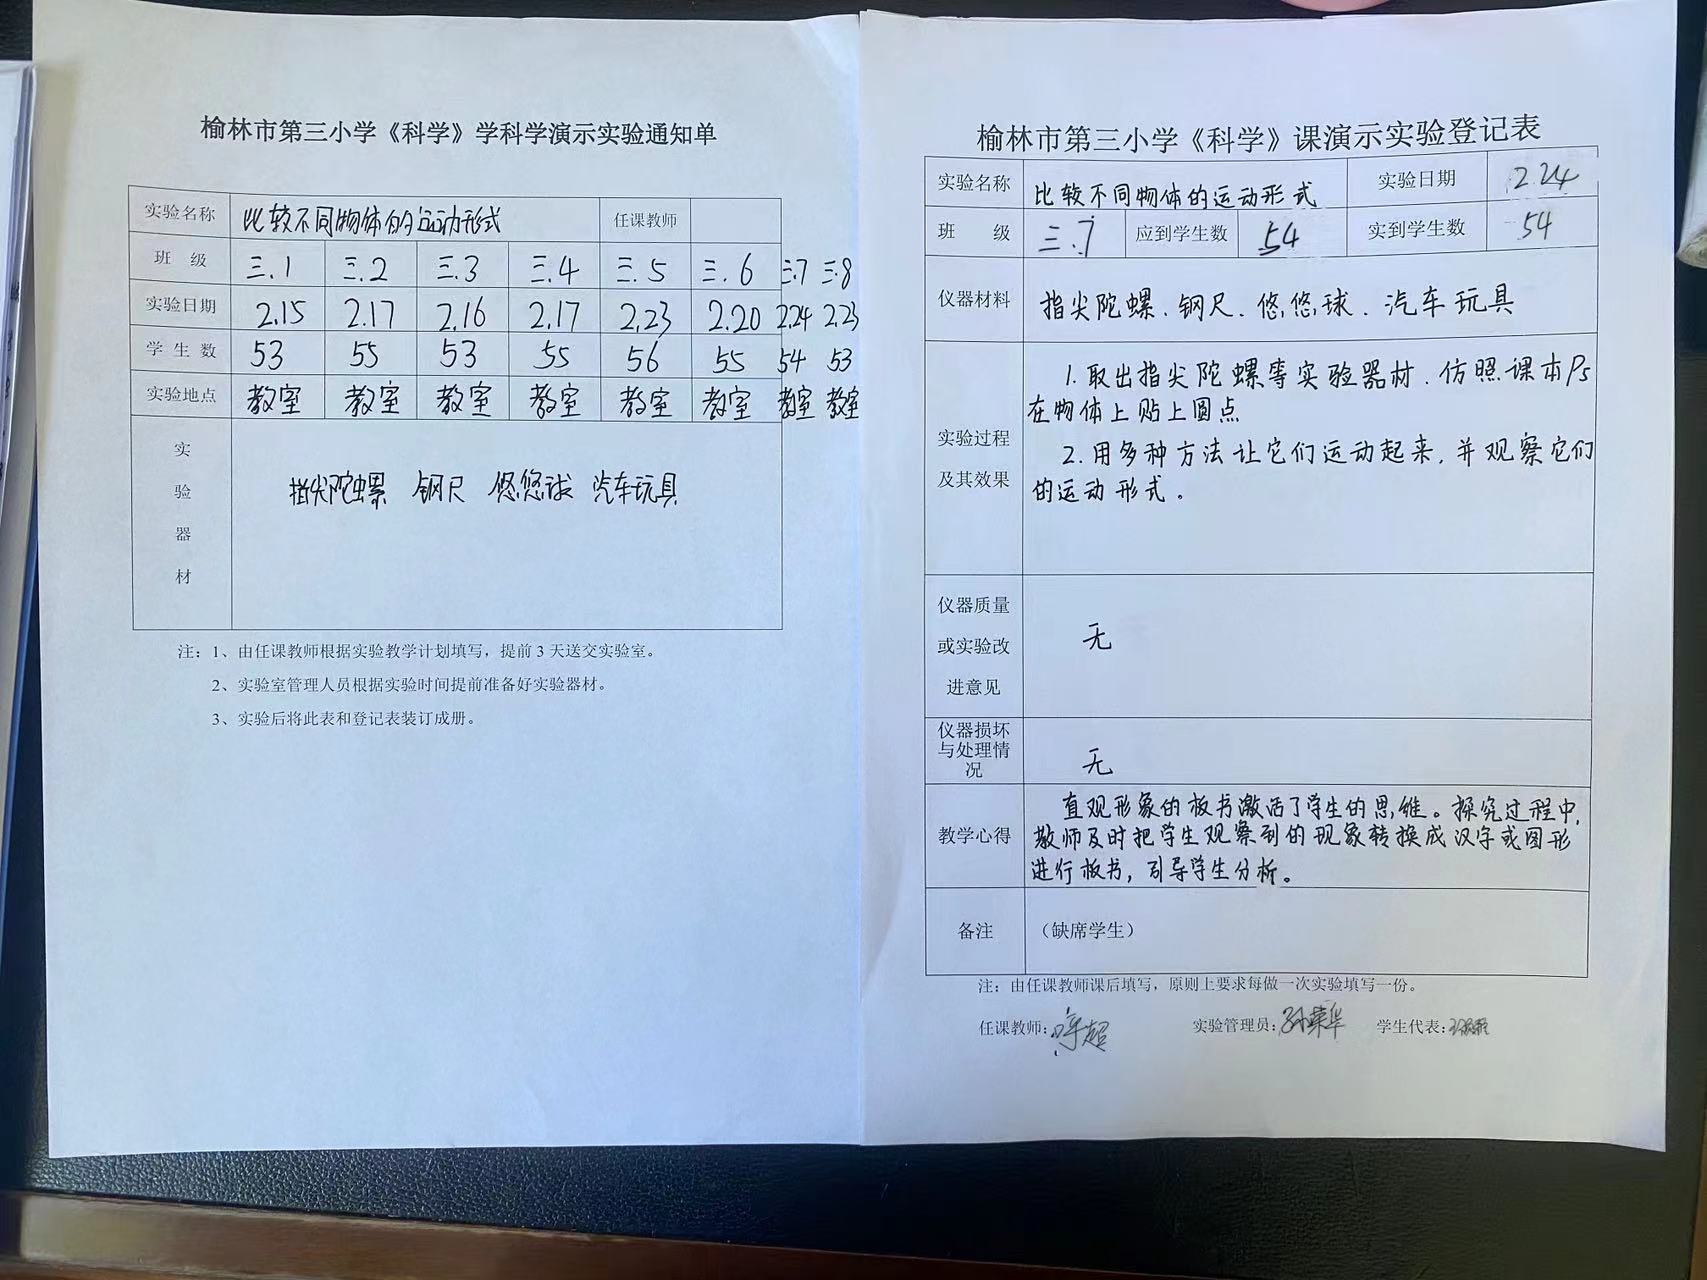 榆林市第三小学《科学》学科学演示实验通知单
实验名称 比较不同物体的运动形式 任课教师
班 级 三.1 三.2 三.3 三.4 三.5 三.6 三.7 三.8
实验日期 2.15 2.17 2.16 2.17 2.23 2.20 2.24 2.23
学 生 数 53 55 53 55 56 55 54 53
实验地点 教室 教室 教室 教室 教室 教室 教室 教室
实
验
器
材
指尖陀螺 钢尺 悠悠球 汽车玩具
注：1、由任课教师根据实验教学计划填写，提前 3 天送交实验室。
2、实验室管理人员根据实验时间提前准备好实验器材。
3、实验后将此表和登记表装订成册。
榆林市第三小学《科学》课演示实验登记表
实验名称 比较不同物体的运动形式 实验日期 2.24
班 级 三.7 应到学生数 54 实到学生数 54
仪器材料 指尖陀螺、钢尺、悠悠球、汽车玩具
实验过程
及其效果
1.取出指尖陀螺等实验器材.仿照课本P5
在物体上贴上圆点
2.用多种方法让它们运动起来,并观察它们
的运动形式。
仪器质量
或实验改
进意见
无
仪器损坏
与处理情
况
无
教学心得
直观形象的板书激活了学生的思维。探究过程中,
教师及时把学生观察到的现象转换成汉字或图形
进行板书,引导学生分析。
备注 （缺席学生）
注：由任课教师课后填写，原则上要求每做一次实验填写一份。
任课教师: 实验管理员:孙荣华 学生代表: